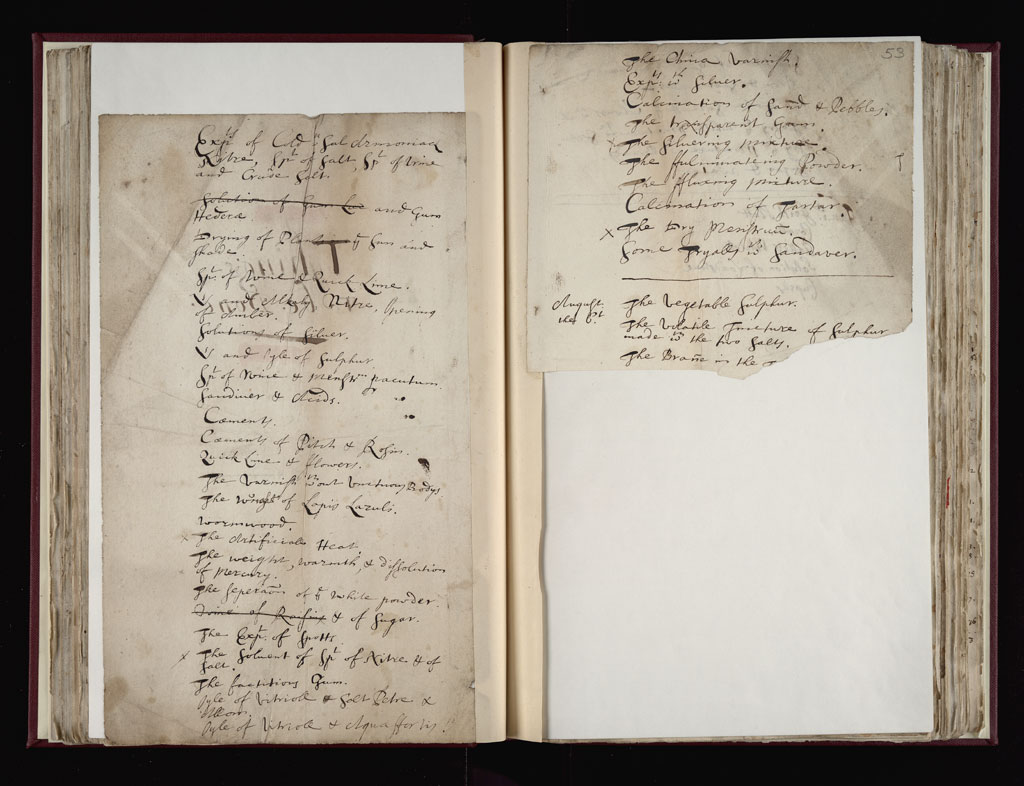 Expts of Cld Sal Armoniack
Nitre, Spt of Salt, Spt of Urine
and Crude Salt.
Solution of Gum Lac and Gum
Hederæ
Drying of Plants in ye Sun and
Shade.
Spt. of Wine & Quick Lime.
and Alkaly Nitre, Opening
of Amber.
Solutions of Silver.
and Oyle of Sulphur
Spt of Wine & Menstm pacatum.
Sandiver & Acids.
Cæments.
Cæments of Pitch & Rosin.
Quick Lime & flowers.
The Varnish wthout Unctuous Bodys
The Weight of Lapis Lazuli.
Wormwood.
x The Artificiale Heat.
The weight, warmth, & dissolution
of Mercury.
The Seperaõn of ye White powder.
Wine of Raisins & of Sugar.
The Expt. of Spotts.
x The Solvent of Spt of Nitre & of
Salt.
The factitious Gum.
Oyle of Vitriole & Salt Petre &
Allom.
Oyle of Vitriole & Aqua fortis
53
The China Varnish.
Expts. wth Silver.
Calcination of Sand & Pebbles.
The transparent Gum.
x The Silvering mixture.
The fulminateing Powder.
The fluxing mixture.
Calcination of Tartar.
x The Dry Menstruũ.
Some Tryalls wth Sandaver.
August
the 6t.
The Vegetable Sulphur.
The Volatile Tincture of Sulphur
made wth the two Salts.
The Braine in the